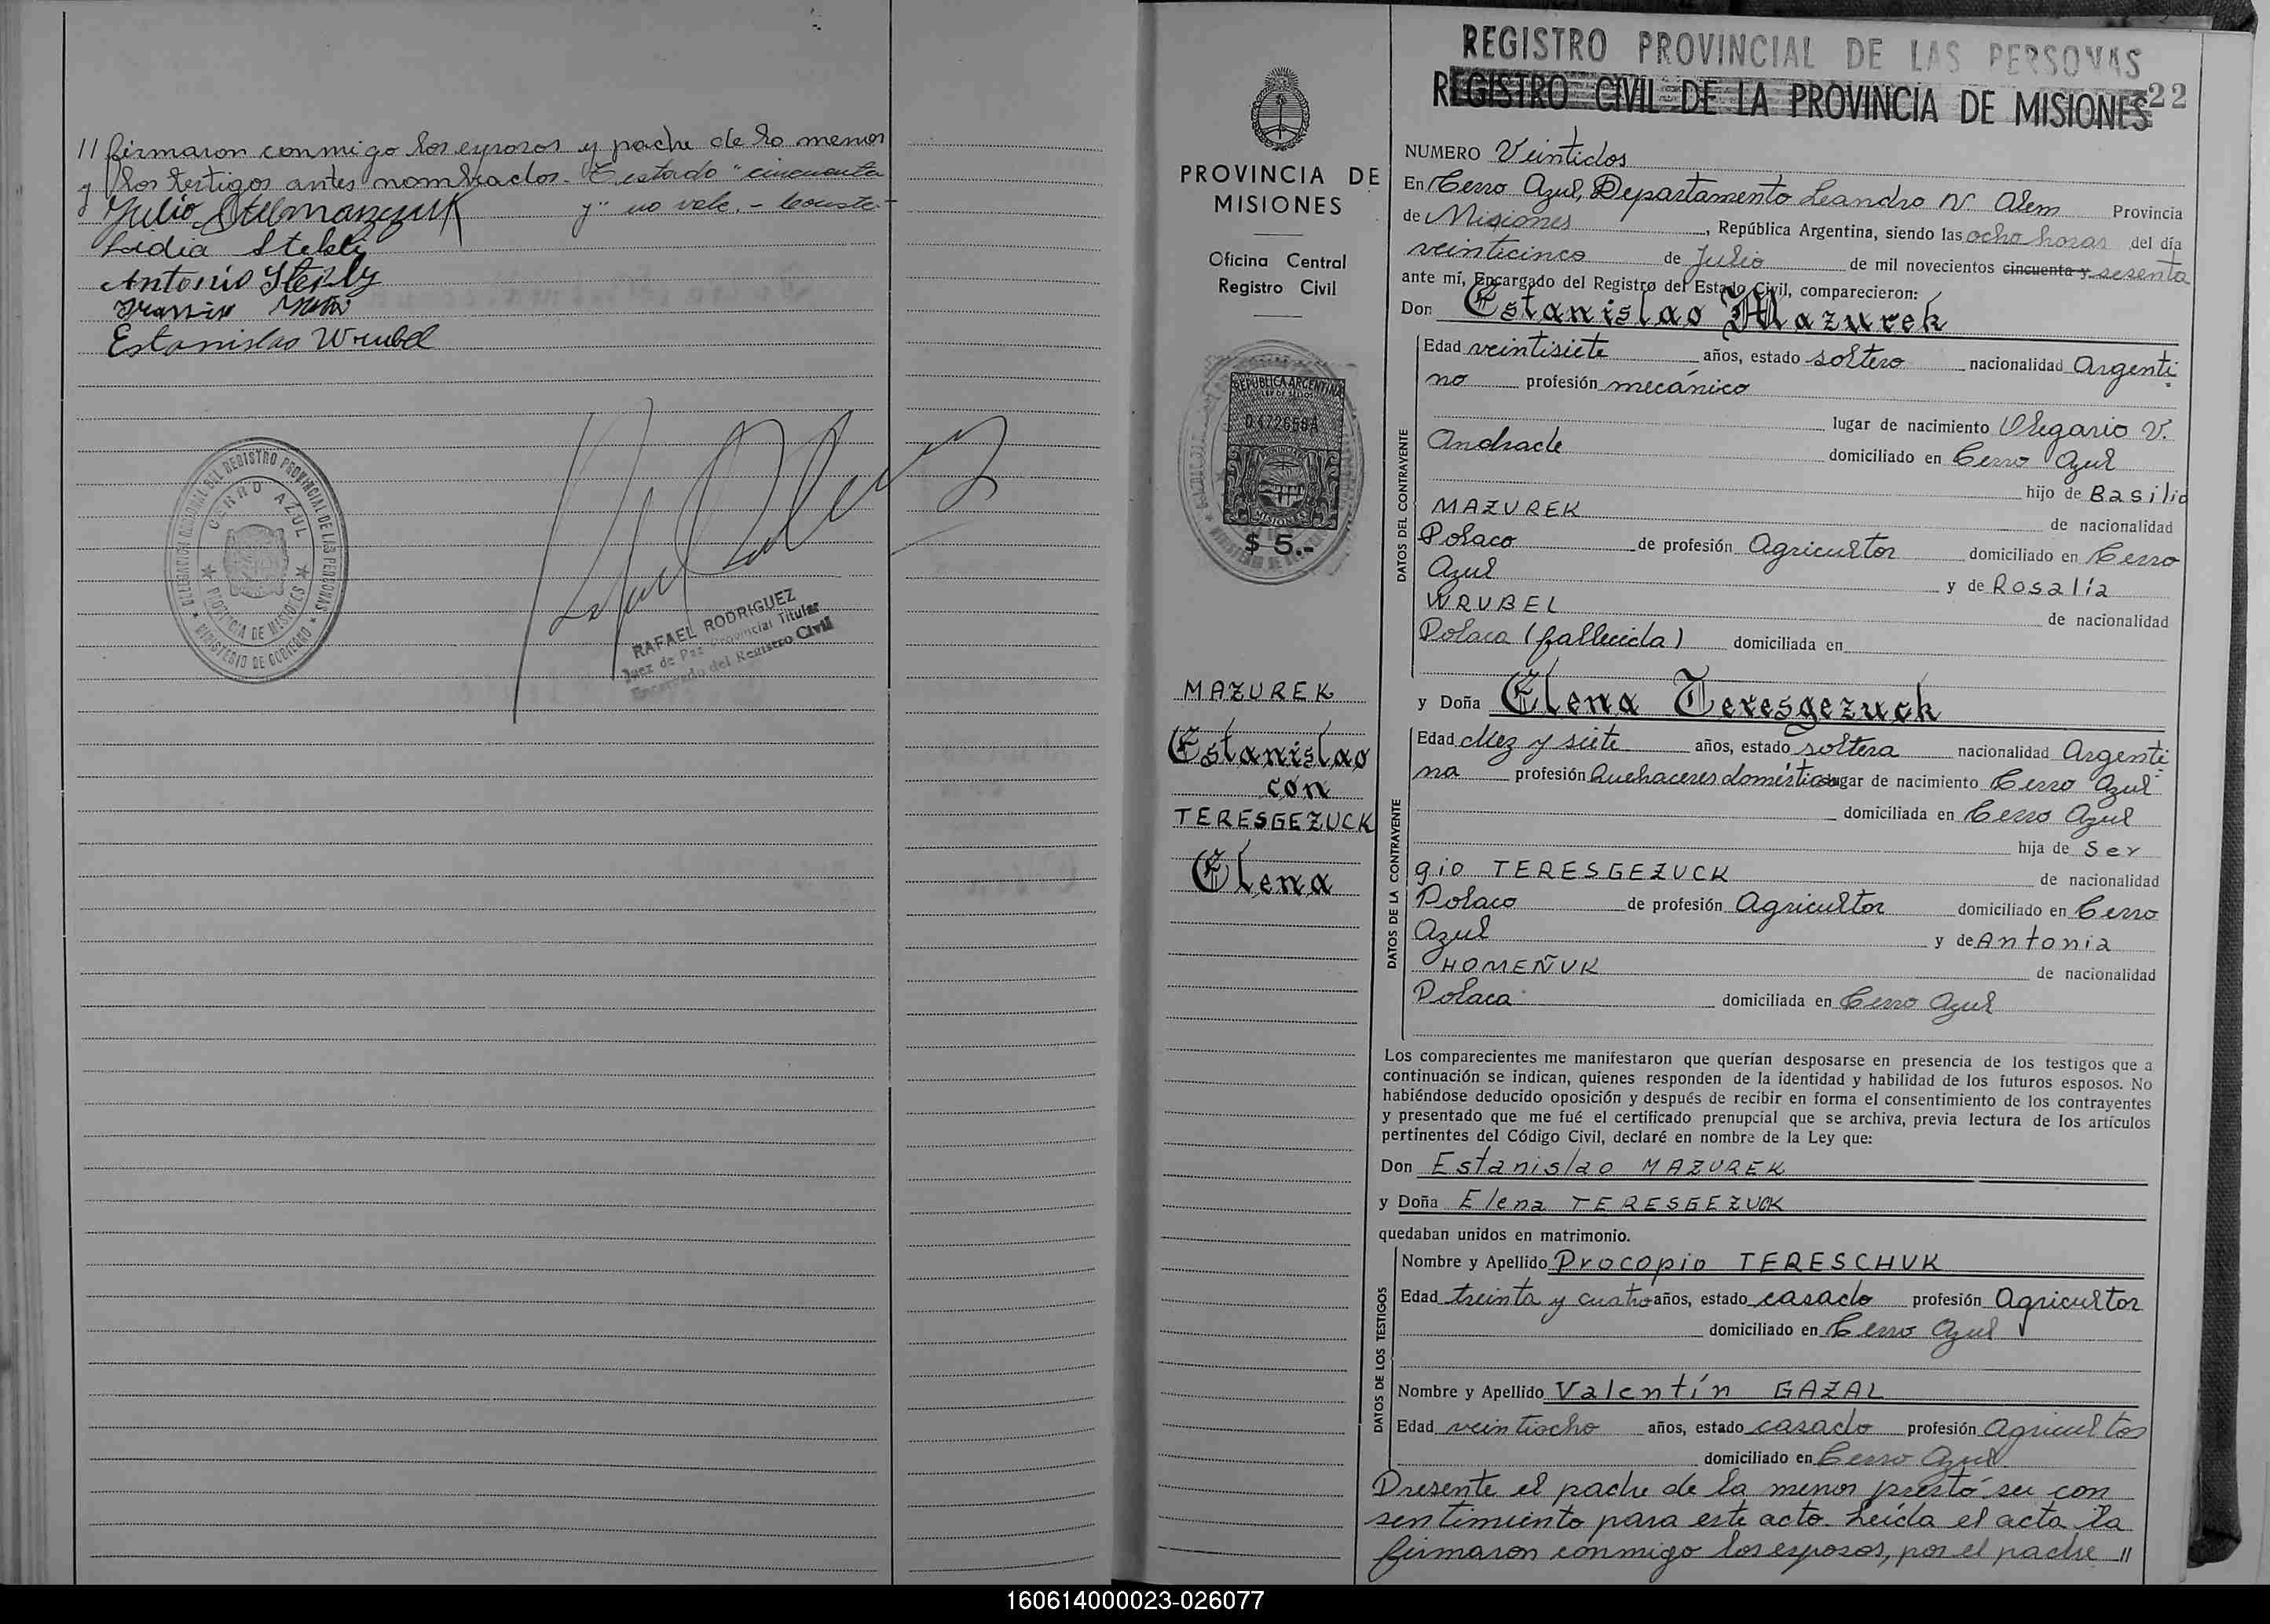 // firmaron conmigo los esposos y padre de la menor
y los testigos antes nombrados.- Testado "cincuenta
y" no vale.- Conste.-
Julio Stelmaszczuk
Ladia
Antonio
Estanislao Wrubel
DELEGACION NACIONAL DEL REGISTRO PROVINCIAL DE LAS PERSONAS
CERRO AZUL
PROVINCIA DE MISIONES
MINISTERIO DE GOBIERNO
RAFAEL RODRIGUEZ
Juez de Paz Provincial Titular
Encargado del Registro Civil
PROVINCIA DE
MISIONES
Oficina Central
Registro Civil
REPUBLICA ARGENTINA
LEY DE SELLOS
PROVINCIA
MISIONES
$ 5.-
MAZUREK
Estanislao
con
TERESGEZUCK
Elena
REGISTRO PROVINCIAL DE LAS PERSONAS
REGISTRO CIVIL DE LA PROVINCIA DE MISIONES
22
NUMERO Veintidos
En Cerro Azul, Departamento Leandro N. Alem Provincia
de Misiones, República Argentina, siendo las ocho horas del día
veinticinco de Julio de mil novecientos cincuenta y sesenta
ante mí, Encargado del Registro del Estado Civil, comparecieron:
Don Estanislao Mazurek
Edad veintisiete años, estado soltero nacionalidad Argenti
no profesión mecánico
lugar de nacimiento Olegario V.
Andrade domiciliado en Cerro Azul
hijo de Basilio
MAZUREK de nacionalidad
Polaco de profesión Agricultor domiciliado en Cerro
Azul y de Rosalía
WRUBEL de nacionalidad
Polaca (fallecida) domiciliada en
DATOS DEL CONTRAYENTE
y Doña Elena Teresgezuck
Edad diez y siete años, estado soltera nacionalidad Argenti
na profesión Quehaceres domésticos lugar de nacimiento Cerro Azul
domiciliada en Cerro Azul
hija de Ser
gio TERESGEZUCK de nacionalidad
Polaco de profesión Agricultor domiciliado en Cerro
Azul y de Antonia
HOMEÑUK de nacionalidad
Polaca domiciliada en Cerro Azul
DATOS DE LA CONTRAYENTE
Los comparecientes me manifestaron que querían desposarse en presencia de los testigos que a
continuación se indican, quienes responden de la identidad y habilidad de los futuros esposos. No
habiéndose deducido oposición y después de recibir en forma el consentimiento de los contrayentes
y presentado que me fué el certificado prenupcial que se archiva, previa lectura de los artículos
pertinentes del Código Civil, declaré en nombre de la Ley que:
Don Estanislao MAZUREK
y Doña Elena TERESGEZUCK
quedaban unidos en matrimonio.
Nombre y Apellido Procopio TERESCHUK
Edad treinta y cuatro años, estado casado profesión Agricultor
domiciliado en Cerro Azul
DATOS DE LOS TESTIGOS
Nombre y Apellido Valentín GAZAL
Edad veintiocho años, estado casado profesión Agricultor
domiciliado en Cerro Azul
Presente el padre de la menor prestó su con
sentimiento para este acto. Leída el acta la
firmaron conmigo los esposos, por el padre //
160614000023-026077